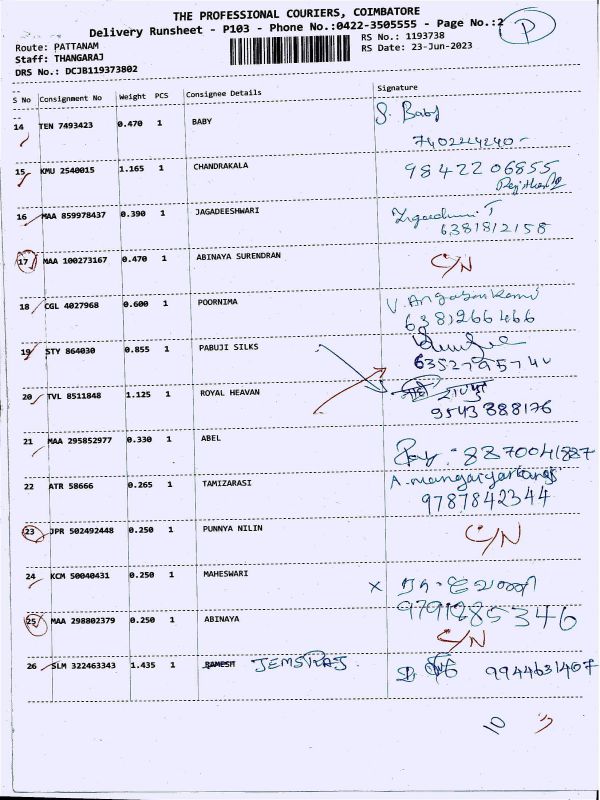 THE PROFESSIONAL COURIERS, COIMBATORE
Delivery Runsheet - P103 - Phone No.:0422-3505555 - Page No.:2 P
Route: PATTANAM RS No.: 1193738
Staff: THANGARAJ RS Date: 23-Jun-2023
DRS No.: DCJB119373802
S No Consignment No Weight PCS Consignee Details Signature
14 TEN 7493423 0.470 1 BABY S. Baby
15 KMU 2540015 1.165 1 CHANDRAKALA 9842206855
16 MAA 859978437 0.390 1 JAGADEESHWARI
6381812158
17 MAA 100273167 0.470 1 ABINAYA SURENDRAN C/N
18 CGL 4027968 0.600 1 POORNIMA
6381266466
19 STY 864030 0.855 1 PABUJI SILKS
20 TVL 8511848 1.125 1 ROYAL HEAVAN
9543888176
21 MAA 295852977 0.330 1 ABEL 8870041887
22 ATR 58666 0.265 1 TAMIZARASI
9787842344
23 JPR 502492448 0.250 1 PUNNYA NILIN C/N
24 KCM 50040431 0.250 1 MAHESWARI
9791285346
25 MAA 298802379 0.250 1 ABINAYA
C/N
26 SLM 322463343 1.435 1 RAMESH JEMSIRAJ 9944631407
10 3